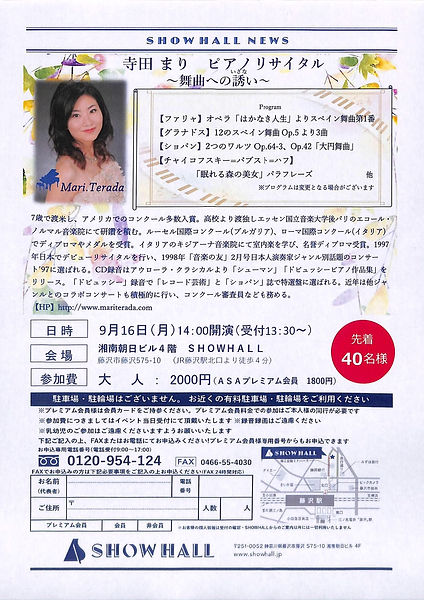 SHOWHALL NEWS
寺田 まり ピアノリサイタル
いざな
～舞曲への誘い～
Program
【ファリャ】オペラ「はかなき人生」よりスペイン舞曲第1番
【グラナドス】12のスペイン舞曲 Op.5より3曲
【ショパン】2つのワルツ Op.64-3、Op.42「大円舞曲」
【チャイコフスキー=パブスト=ハフ】
「眠れる森の美女」パラフレーズ 他
※プログラムは変更となる場合がございます
Mari.Terada
7歳で渡米し、アメリカでのコンクール多数入賞。高校より渡独しエッセン国立音楽大学後パリのエコール・
ノルマル音楽院にて研鑽を積む。ルーセル国際コンクール(ブルガリア)、ローマ国際コンクール(イタリア)
でディプロマやメダルを受賞。イタリアのキジアーナ音楽院にて室内楽を学び、名誉ディプロマ受賞。1997
年日本でデビューリサイタルを行い、1998年「音楽の友」2月号日本人演奏家ジャンル別話題のコンサー
ト'97に選ばれる。CD録音はアウローラ・クラシカルより「シューマン」「ドビュッシーピアノ作品集」を
リリース。「ドビュッシー」録音で「レコード芸術」と「ショパン」誌で特選盤に選ばれる。近年は他ジャ
ンルとのコラボコンサートも積極的に行い、コンクール審査員なども務める。
【HP】http://www.mariterada.com
日時 9月16日(月)14:00開演(受付13:30～)
会場 湘南朝日ビル4階 SHOWHALL
藤沢市藤沢575-10 (JR藤沢駅北口より徒歩4分)
先着
40名様
参加費 大人：2000円(ASAプレミアム会員 1800円)
駐車場・駐輪場はございません。お近くの有料駐車場・駐輪場をご利用ください
※プレミアム会員様は会員カードをご持参ください。プレミアム会員料金での参加はご本人様の同行が必要です
※参加費につきましてはイベント当日受付にて頂戴いたします ※録音録画はご遠慮ください
※乳幼児のご参加はご遠慮くださいますようお願いいたします
下記ご記入の上、FAXまたはお電話にてお申込みください!プレミアム会員様専用番号からもお申込できます
お申込専用電話番号(電話受付09:00～17:00)
0120-954-124 FAX 0466-55-4030
FAXでお申込みの方は下記必要事項をご記入の上お申込ください(FAX 24時間対応)
お名前
(代表者)
電話
番号
ご住所 〒
人数 人
プレミアム会員 会員 非会員
SHOWHALL
藤沢駅
SHOWHALL
〒251-0052 神奈川県藤沢市藤沢 575-10 湘南朝日ビル 4F
www.showhall.jp